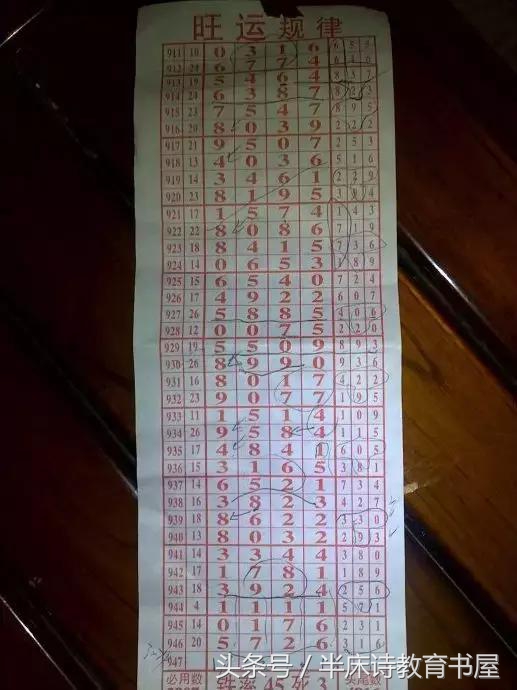 旺运规律
911 10 0 3 1 6 6 5 5
912 24 6 7 7 4 6 4 6
913 19 5 4 6 4 8 3 2
914 24 6 3 8 7 8 2 3
915 23 7 5 4 7 8 9 5
916 20 8 0 3 9 2 2 2
917 21 9 5 0 7 2 5 3
918 13 4 0 3 6 5 1 6
919 14 3 4 6 1 2 2 9
920 23 8 1 9 5 3 8 4
921 17 1 5 7 4 1 4 3
922 22 8 0 8 6 7 1 9
923 18 8 4 1 5 7 3 6
924 14 0 6 5 3 3 8 9
925 15 6 5 4 0 7 2 4
926 17 4 9 2 2 6 0 7
927 26 5 8 8 5 4 0 6
928 12 0 0 7 5 2 2 0
929 19 5 5 0 9 8 9 3
930 26 8 9 9 0 9 3 6
931 16 8 0 1 7 4 2 2
932 23 9 0 7 7 1 9 5
933 11 1 5 1 4 1 0 9
934 26 9 5 8 4 1 1 5
935 17 4 8 4 1 6 0 5
936 15 3 1 6 5 3 8 1
937 14 6 5 2 1 7 3 4
938 16 3 8 2 3 4 2 7
939 18 8 6 2 2 3 3 0
940 13 8 0 3 2 2 9 3
941 14 3 3 4 4 3 8 0
942 17 1 7 8 1 1 8 9
943 18 3 9 2 4 2 5 6
944 4 1 1 1 1 5 7 1
945 14 0 1 7 6 2 3 1
946 20 5 7 2 6 3 1 6
947
必用数 45 死 3 头尾数
头条号 / 半床诗教育书屋